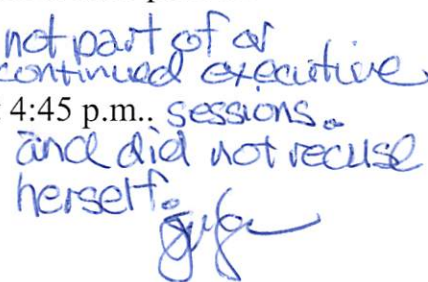 not part of or
continued executive
4:45 p.m.. sessions.
and did not recuse
herself.